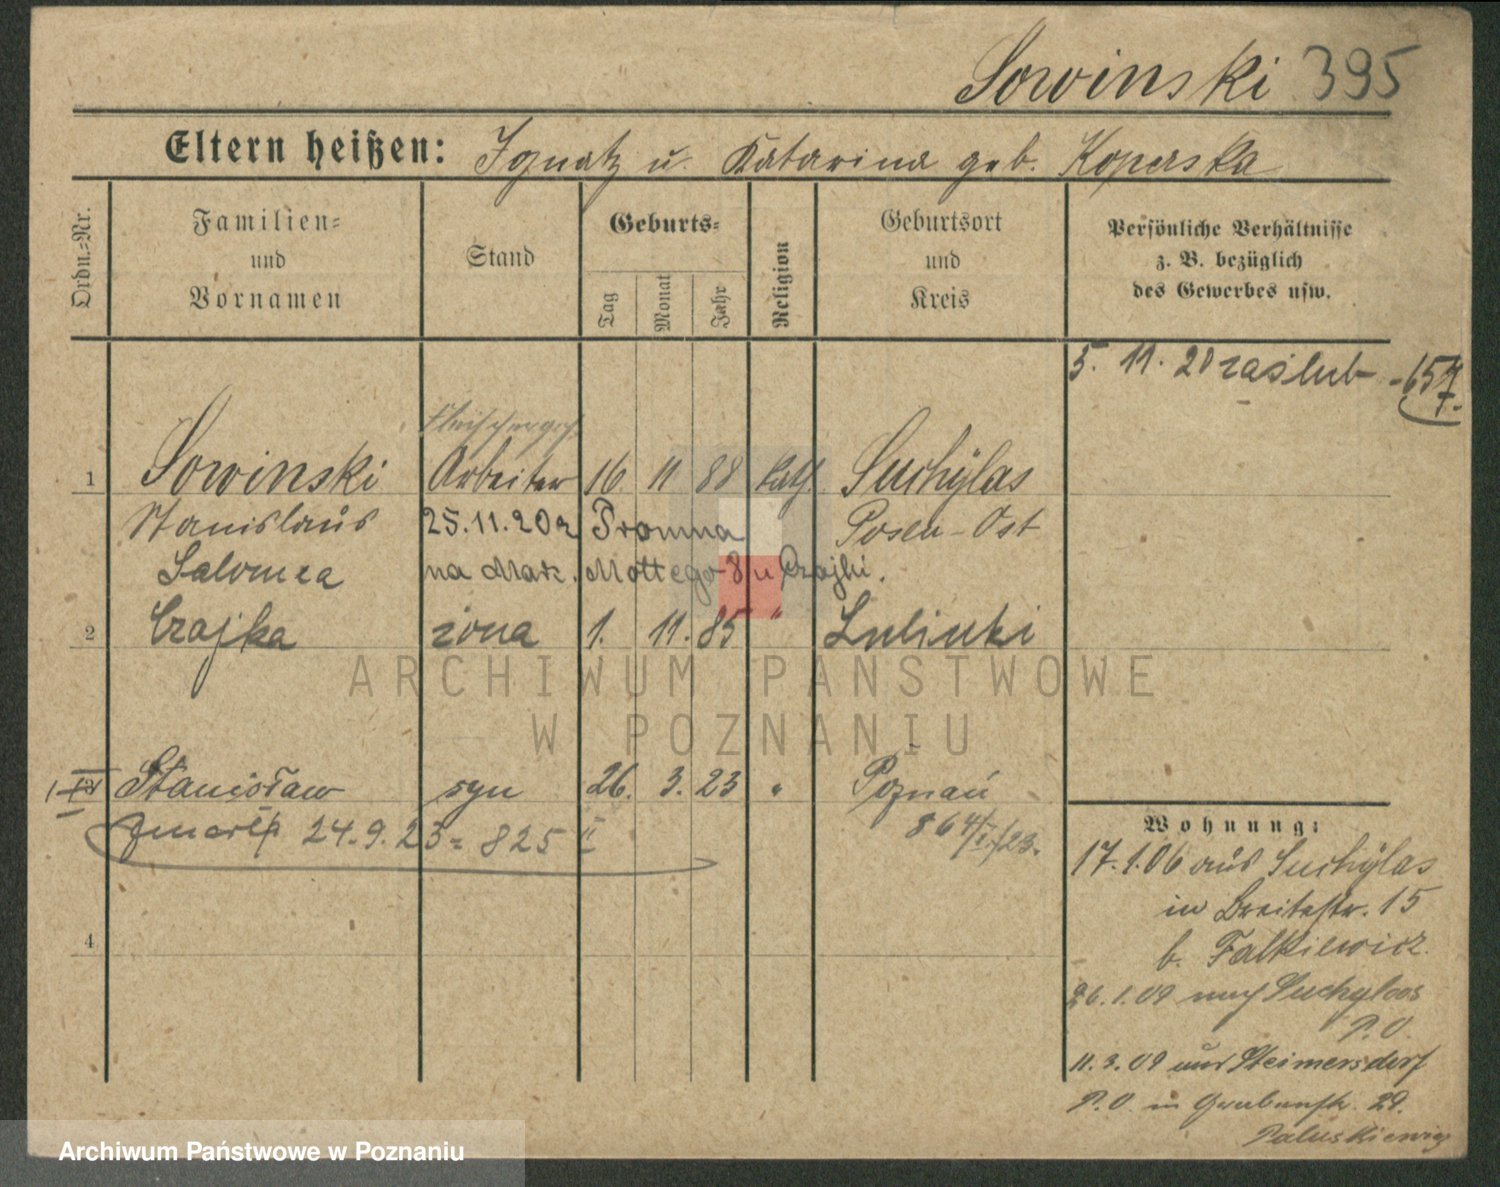 Sowinski 395
Eltern heißen: Ignatz u. Katarina geb. Koperska
Ordn.=Nr.
Familien=
und
Vornamen
Stand
Geburts=
Tag
Monat
Jahr
Religion
Geburtsort
und
Kreis
Persönliche Verhältnisse
z. B. bezüglich
des Gewerbes usw.
5. 11. 20 zaślub - 657
Fleischerges.
1 Sowinski Arbeiter 16 11 88 kath. Suchÿlas
Stanislaus 25.11.20 z Promna Posen-Ost
Salomea na Mar. Mottego 8 u Czajki.
2 Czajka żona 1. 11. 85 " Lulinki
Stanisław syn 26. 3. 23 " Poznań
zmarł 24.9.23 = 825 II 864/I/23.
4
Wohnung:
17.1.06 aus Suchÿlas
in Breitestr. 15
b. Falkiewicz.
26.1.09 nach Suchylas
P.O.
11.3.09 aus Steimersdorf
P.O. in Grabenstr. 29.
Paluskiewicz
ARCHIWUM PAŃSTWOWE
W POZNANIU
Archiwum Państwowe w Poznaniu